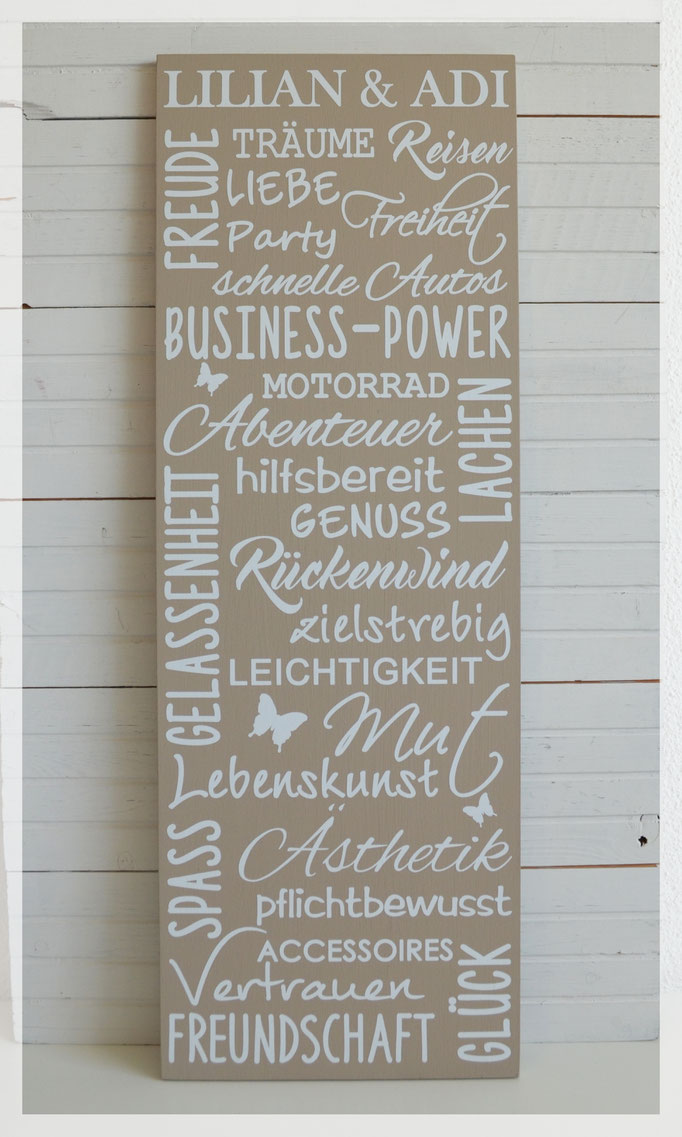 LILIAN & ADI
FREUDE
TRÄUME Reisen
LIEBE
Freiheit
Party
schnelle Autos
BUSINESS-POWER
MOTORRAD
LACHEN
Abenteuer
hilfsbereit
GENUSS
GELASSENHEIT
Rückenwind
zielstrebig
LEICHTIGKEIT
Mut
Lebenskunst
SPASS
Ästhetik
pflichtbewusst
ACCESSOIRES
Vertrauen
GLÜCK
FREUNDSCHAFT